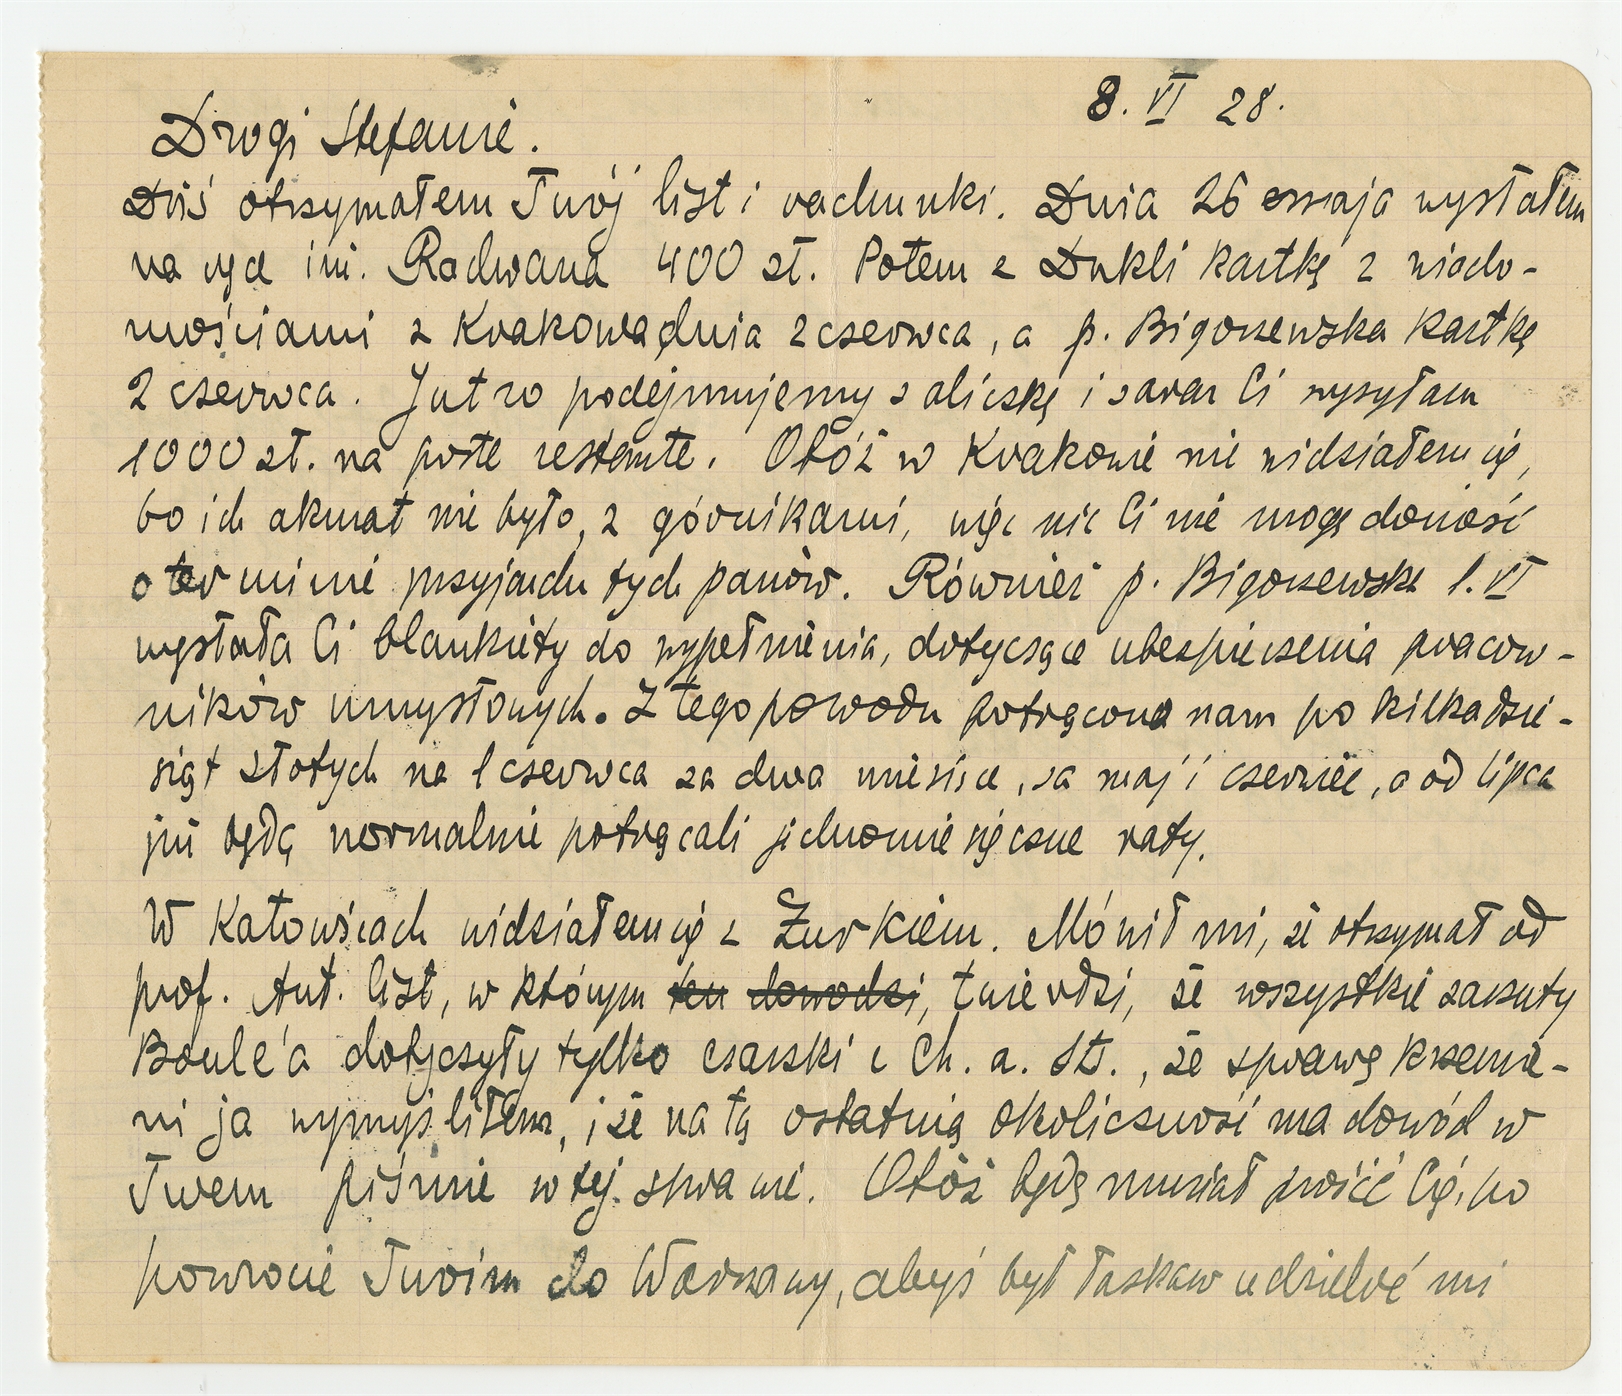 8. VI 28.
Drogi Stefanie.
Dziś otrzymałem Twój list i rachunki. Dnia 26 maja wysłałem
na ręce inż. Radwana 400 zł. Potem z Dukli kartkę z wiado-
mościami z Krakowa dnia 2 czerwca, a p. Bigoszewska kartkę
2 czerwca. Jutro podejmujemy zaliczkę i zaraz Ci wysyłam
1000 zł. na poste restante. Otóż w Krakowie nie widziałem się,
bo ich akurat nie było, z górnikami, więc nic Ci nie mogę donieść
o terminie przyjazdu tych panów. Również p. Bigoszewska 1. VI
wysłała Ci blankiety do wypełnienia, dotyczące ubezpieczenia pracow-
ników umysłowych. Z tego powodu potrącono nam po kilkadzie-
siąt złotych na 1 czerwca za dwa miesiące, za maj i czerwiec, a od lipca
już będą normalnie potrącali jednomiesięczne raty.
W Katowicach widziałem się z Żurkiem. Mówił mi, że otrzymał od
prof. Ant. list, w którym ten dowodzi, twierdzi, że wszystkie zarzuty
Boule'a dotyczyły tylko czaszki z Ch. a. St., że sprawę krzemie-
ni ja wymyśliłem, i że na tą ostatnią okoliczność ma dowód w
Twem piśmie w tej sprawie. Otóż będę musiał prosić Cię, po
powrocie Twoim do Warszawy, abyś był łaskaw udzielić mi